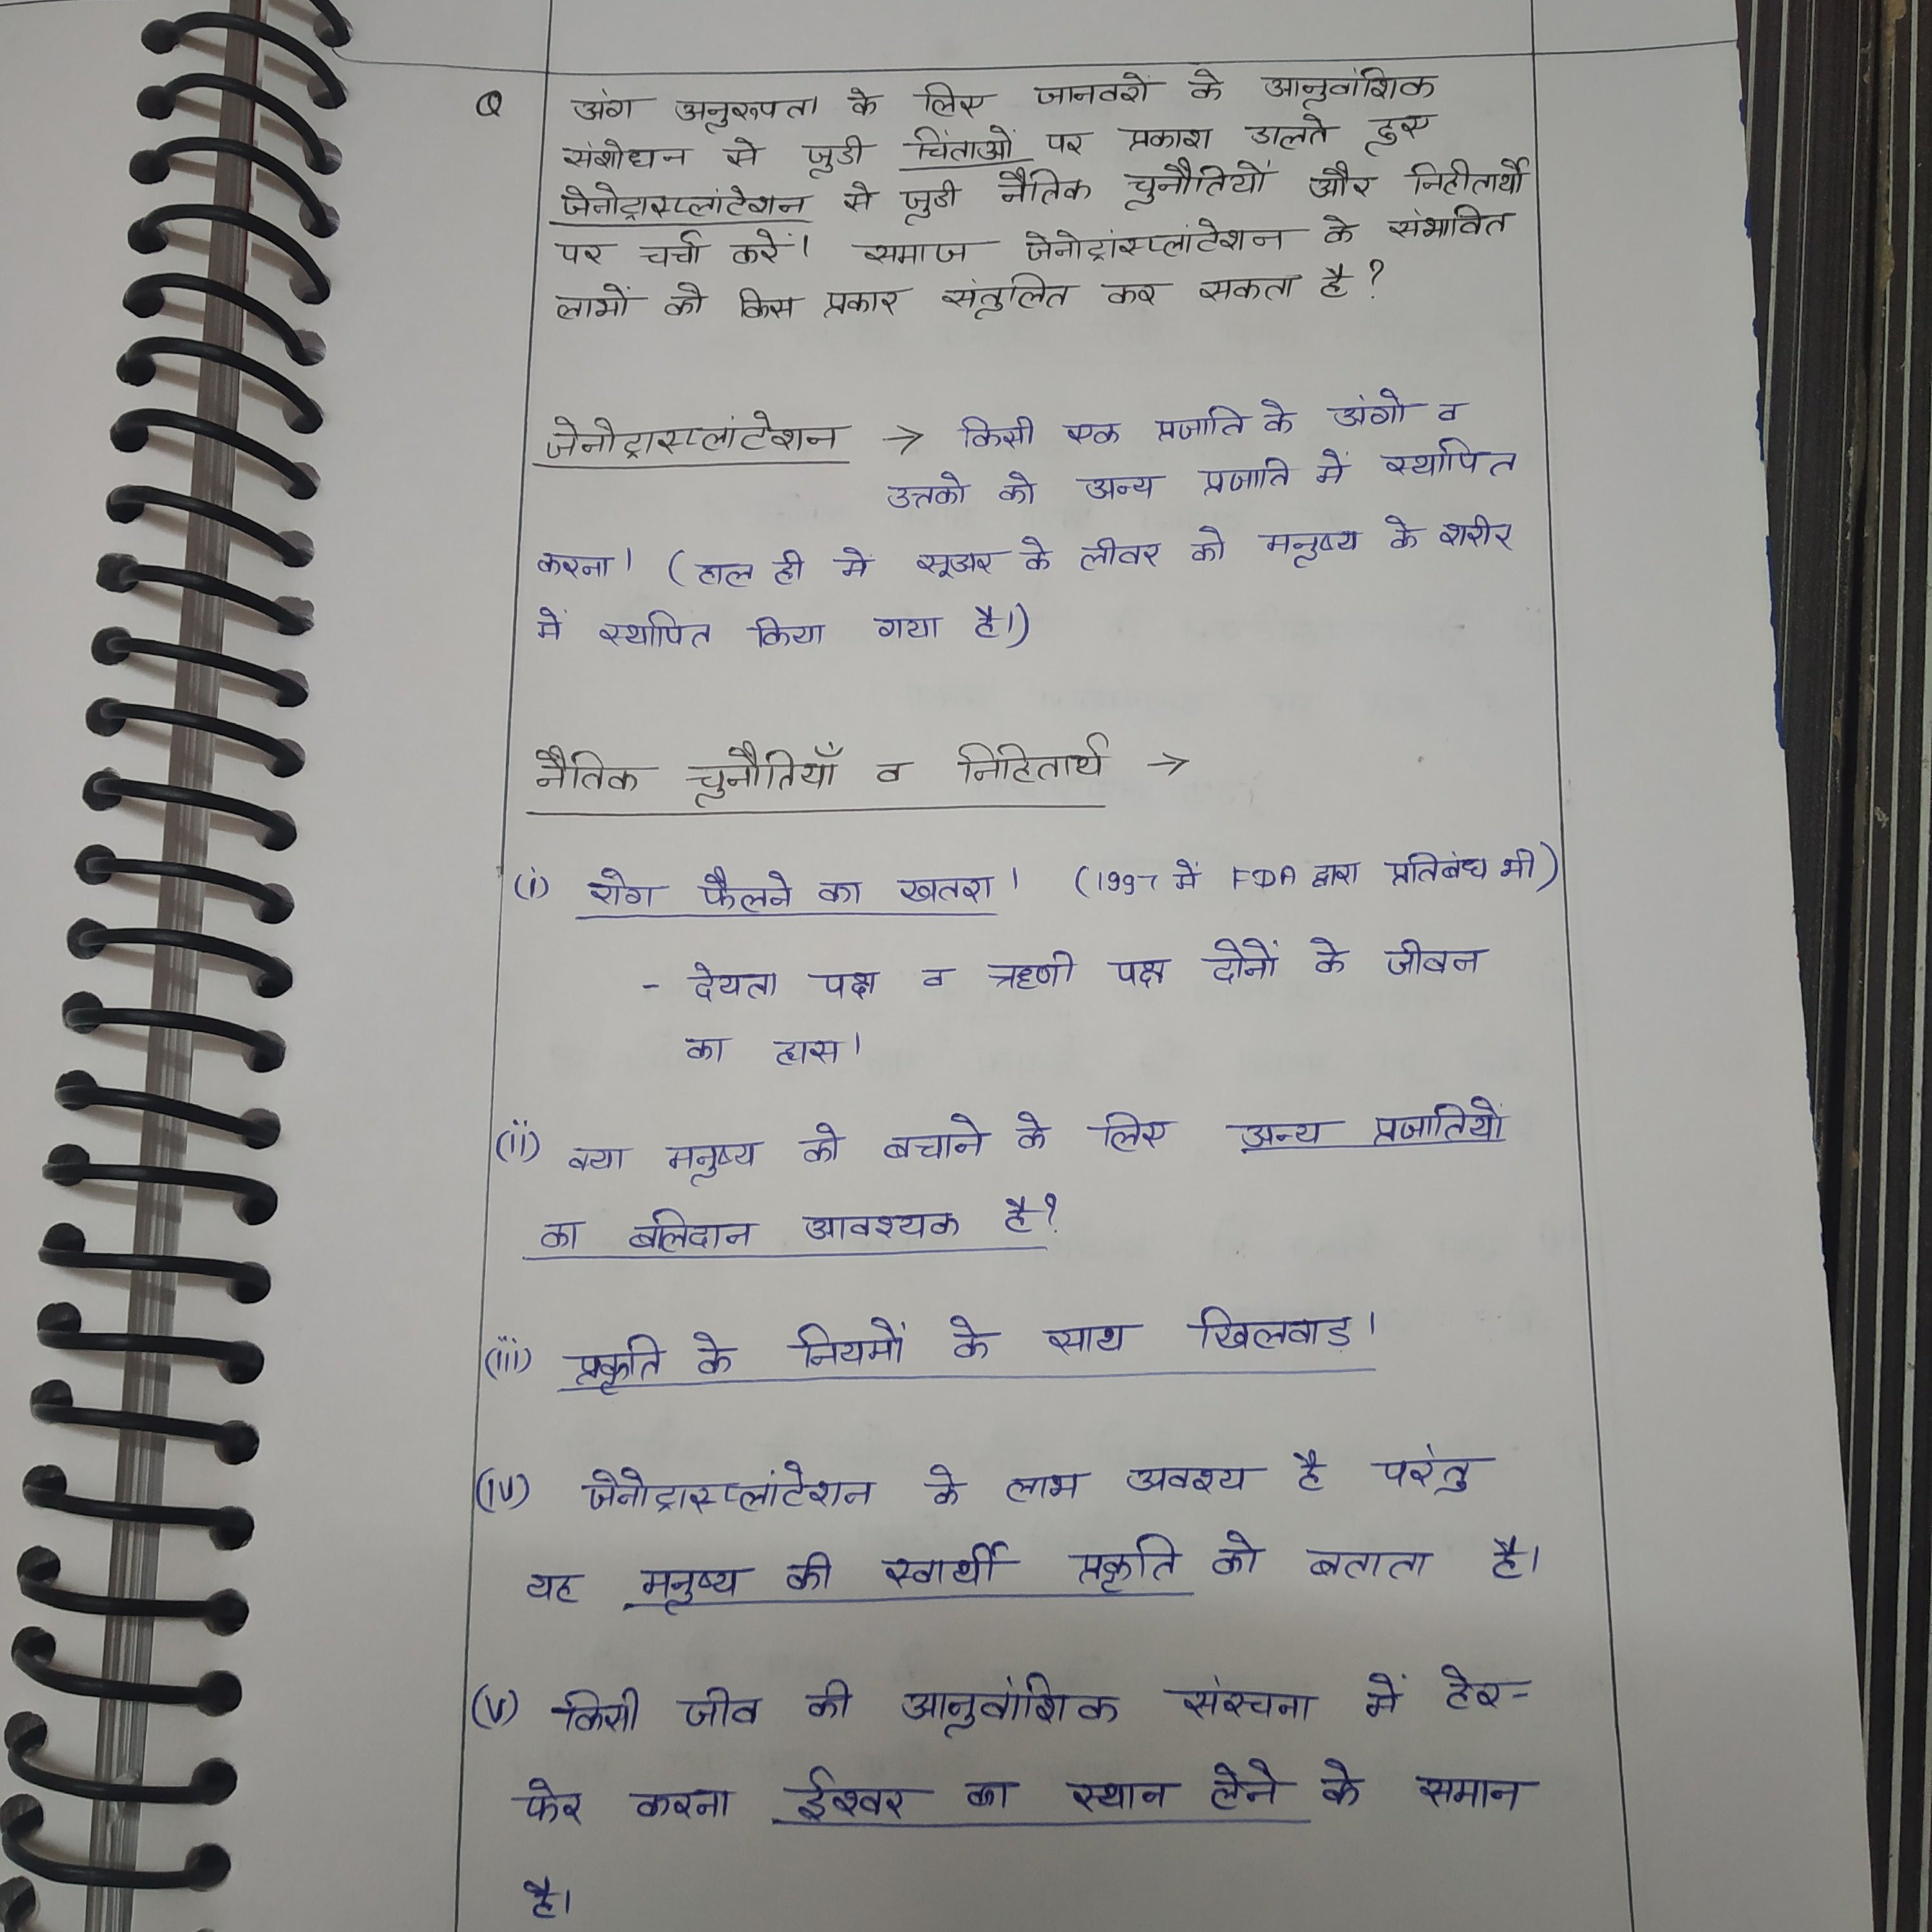 Q अंग अनुरूपता के लिए जानवरों के आनुवांशिक
संशोधन से जुडी चिंताओं पर प्रकाश डालते हुए
जेनोट्रास्प्लांटेशन से जुडी नैतिक चुनौतियों और निहीतार्थों
पर चर्चा करें। समाज जेनोट्रांस्प्लांटेशन के संभावित
लाभों को किस प्रकार संतुलित कर सकता है?
जेनोट्रास्प्लांटेशन → किसी एक प्रजाति के अंगो व
उत्तको को अन्य प्रजाति में स्थापित
करना। (हाल ही में सूअर के लीवर को मनुष्य के शरीर
में स्थापित किया गया है।)
नैतिक चुनौतियाँ व निहितार्थ →
(i) रोग फैलने का खतरा। (1997 में FDA द्वारा प्रतिबंध भी)
- देयता पक्ष व ऋणी पक्ष दोनों के जीवन
का ह्रास।
(ii) क्या मनुष्य को बचाने के लिए अन्य प्रजातियों
का बलिदान आवश्यक है?
(iii) प्रकृति के नियमों के साथ खिलवाड।
(iv) जेनोट्रास्प्लांटेशन के लाभ अवश्य है परंतु
यह मनुष्य की स्वार्थी प्रकृति को बताता है।
(v) किसी जीव की आनुवांशिक संरचना में हेर-
फेर करना ईश्वर का स्थान लेने के समान
है।